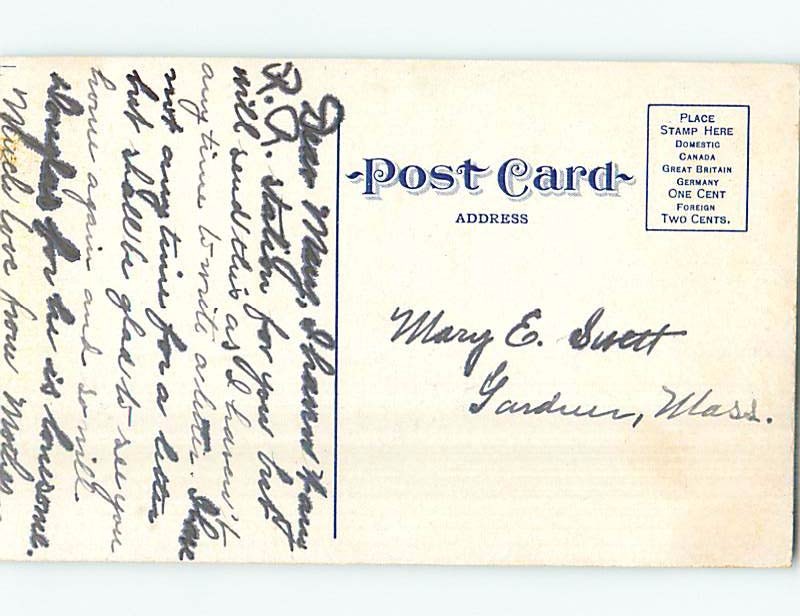 Dear Mary, I haven't any
P. O. station for you but
will send this as I haven't
any time to write a letter. I have
not any time for a letter
but shall be glad to see you
home again and so will
Douglas for he is lonesome.
Much love from Mother
Post Card
ADDRESS
PLACE
STAMP HERE
DOMESTIC
CANADA
GREAT BRITAIN
GERMANY
ONE CENT
FOREIGN
TWO CENTS.
Mary E. Swett
Gardner, Mass.